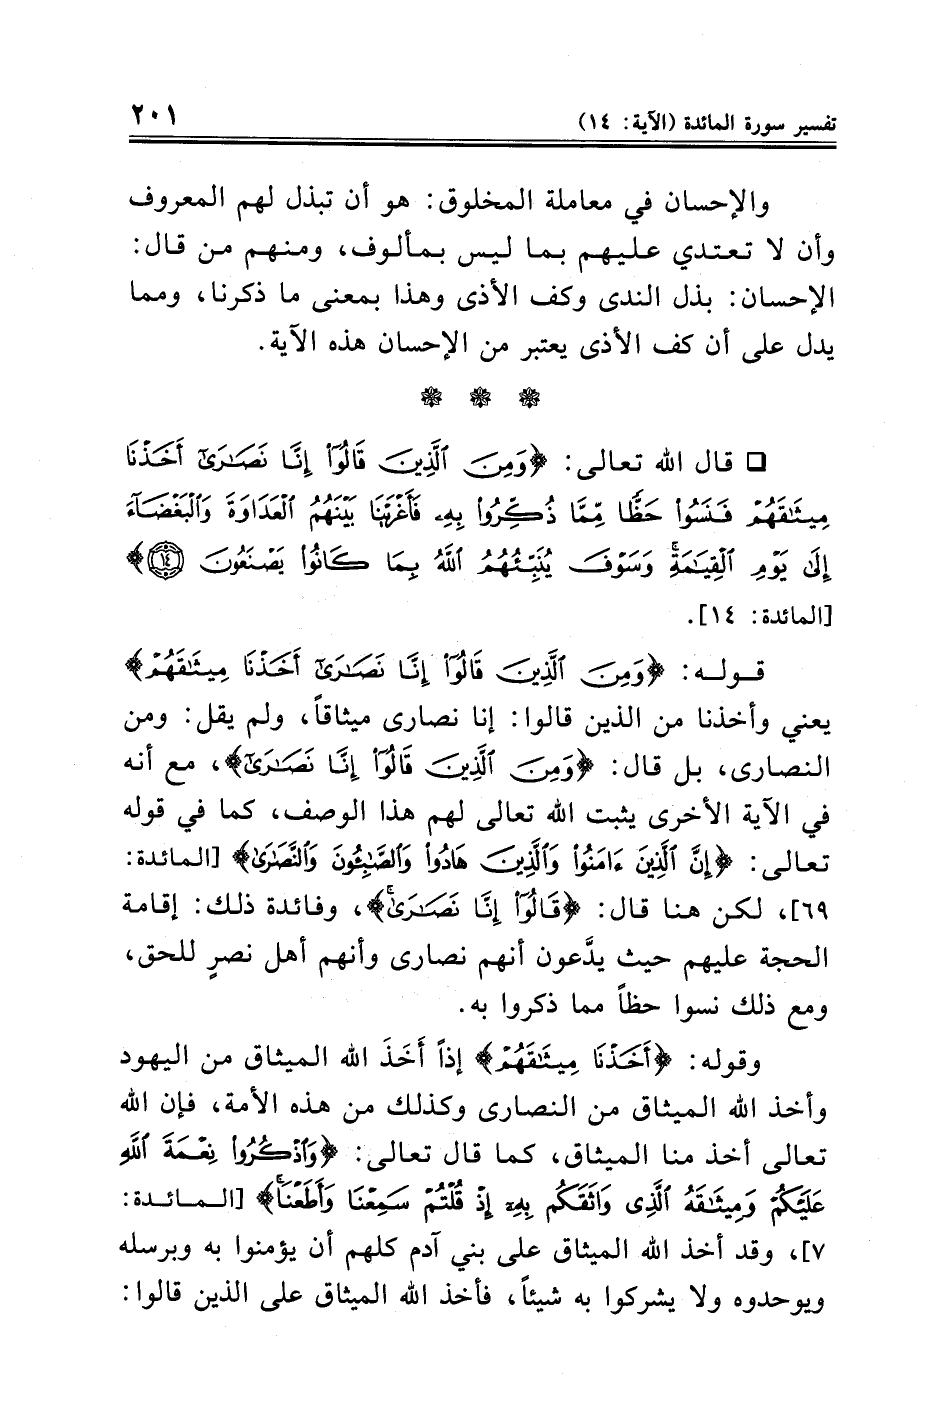 تفسير سورة المائدة (الآية: ١٤) ٢٠١
والإحسان في معاملة المخلوق: هو أن تبذل لهم المعروف
وأن لا تعتدي عليهم بما ليس بمألوف، ومنهم من قال:
الإحسان: بذل الندى وكف الأذى وهذا بمعنى ما ذكرنا، ومما
يدل على أن كف الأذى يعتبر من الإحسان هذه الآية.
❁ ❁ ❁
❑ قال الله تعالى: ﴿وَمِنَ ٱلَّذِينَ قَالُوٓا۟ إِنَّا نَصَـٰرَىٰٓ أَخَذْنَا
مِيثَـٰقَهُمْ فَنَسُوا۟ حَظًّا مِّمَّا ذُكِّرُوا۟ بِهِۦ فَأَغْرَيْنَا بَيْنَهُمُ ٱلْعَدَاوَةَ وَٱلْبَغْضَآءَ
إِلَىٰ يَوْمِ ٱلْقِيَـٰمَةِ ۚ وَسَوْفَ يُنَبِّئُهُمُ ٱللَّهُ بِمَا كَانُوا۟ يَصْنَعُونَ ١٤﴾
[المائدة: ١٤].
قوله: ﴿وَمِنَ ٱلَّذِينَ قَالُوٓا۟ إِنَّا نَصَـٰرَىٰٓ أَخَذْنَا مِيثَـٰقَهُمْ﴾
يعني وأخذنا من الذين قالوا: إنا نصارى ميثاقاً، ولم يقل: ومن
النصارى، بل قال: ﴿وَمِنَ ٱلَّذِينَ قَالُوٓا۟ إِنَّا نَصَـٰرَىٰٓ﴾، مع أنه
في الآية الأخرى يثبت الله تعالى لهم هذا الوصف، كما في قوله
تعالى: ﴿إِنَّ ٱلَّذِينَ ءَامَنُوا۟ وَٱلَّذِينَ هَادُوا۟ وَٱلصَّـٰبِـُٔونَ وَٱلنَّصَـٰرَىٰ﴾ [المائدة:
٦٩]، لكن هنا قال: ﴿قَالُوٓا۟ إِنَّا نَصَـٰرَىٰ ۚ﴾، وفائدة ذلك: إقامة
الحجة عليهم حيث يدَّعون أنهم نصارى وأنهم أهل نصرٍ للحق،
ومع ذلك نسوا حظاً مما ذكروا به.
وقوله: ﴿أَخَذْنَا مِيثَـٰقَهُمْ﴾ إذاً أَخَذَ الله الميثاق من اليهود
وأخذ الله الميثاق من النصارى وكذلك من هذه الأمة، فإن الله
تعالى أخذ منا الميثاق، كما قال تعالى: ﴿وَٱذْكُرُوا۟ نِعْمَةَ ٱللَّهِ
عَلَيْكُمْ وَمِيثَـٰقَهُ ٱلَّذِى وَاثَقَكُم بِهِۦٓ إِذْ قُلْتُمْ سَمِعْنَا وَأَطَعْنَا ۚ﴾ [المائدة:
٧]، وقد أخذ الله الميثاق على بني آدم كلهم أن يؤمنوا به وبرسله
ويوحدوه ولا يشركوا به شيئاً، فأخذ الله الميثاق على الذين قالوا: